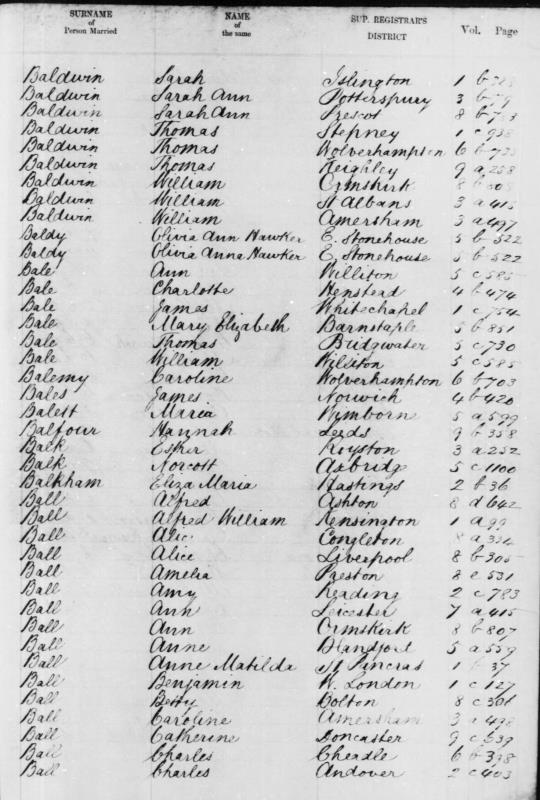 SURNAME of Person Married NAME of the same SUP. REGISTRAR'S DISTRICT Vol. Page
Baldwin Sarah Islington 1 b
Baldwin Sarah Ann Potterspury 3 b
Baldwin Sarah Ann Prescot 8 b
Baldwin Thomas Stepney 1 c 938
Baldwin Thomas Wolverhampton 6 b
Baldwin Thomas Keighley 9 a 258
Baldwin William Ormskirk 8 b
Baldwin William St Albans 3 a 415
Baldwin William Amersham 3 a 497
Baldy Olivia Ann Hawker E. Stonehouse 5 b 522
Baldy Olivia Anna Hawker E. Stonehouse 5 b 522
Bale Ann Williton 5 c 585
Bale Charlotte Henstead 4 b 474
Bale James Whitechapel 1 c 754
Bale Mary Elizabeth Barnstaple 5 b 851
Bale Thomas Bridgwater 5 c 730
Bale William Wiliton 5 c 585
Balemy Caroline Wolverhampton 6 b 703
Bales James Norwich 4 b 420
Balest Maria Wimborn 5 a 599
Balfour Hannah Leeds 9 b 358
Balk Esther Royston 3 a 252
Balk Norcott Axbridge 5 c 1100
Balkham Eliza Maria Hastings 2 b 36
Ball Alfred Ashton 8 d 642
Ball Alfred William Kensington 1 a 99
Ball Alice Congleton 8 a 334
Ball Alice Liverpool 8 b 305
Ball Amelia Preston 8 e 531
Ball Amy Reading 2 c 783
Ball Ann Leicester 7 a 415
Ball Ann Ormskirk 8 b 807
Ball Anne Blandford 5 a 559
Ball Anne Matilda St Pancras 1 b 37
Ball Benjamin W. London 1 c 127
Ball Betty Bolton 8 c 361
Ball Caroline Amersham 3 a 498
Ball Catherine Doncaster 9 c 539
Ball Charles Cheadle 6 b 398
Ball Charles Andover 2 c 403